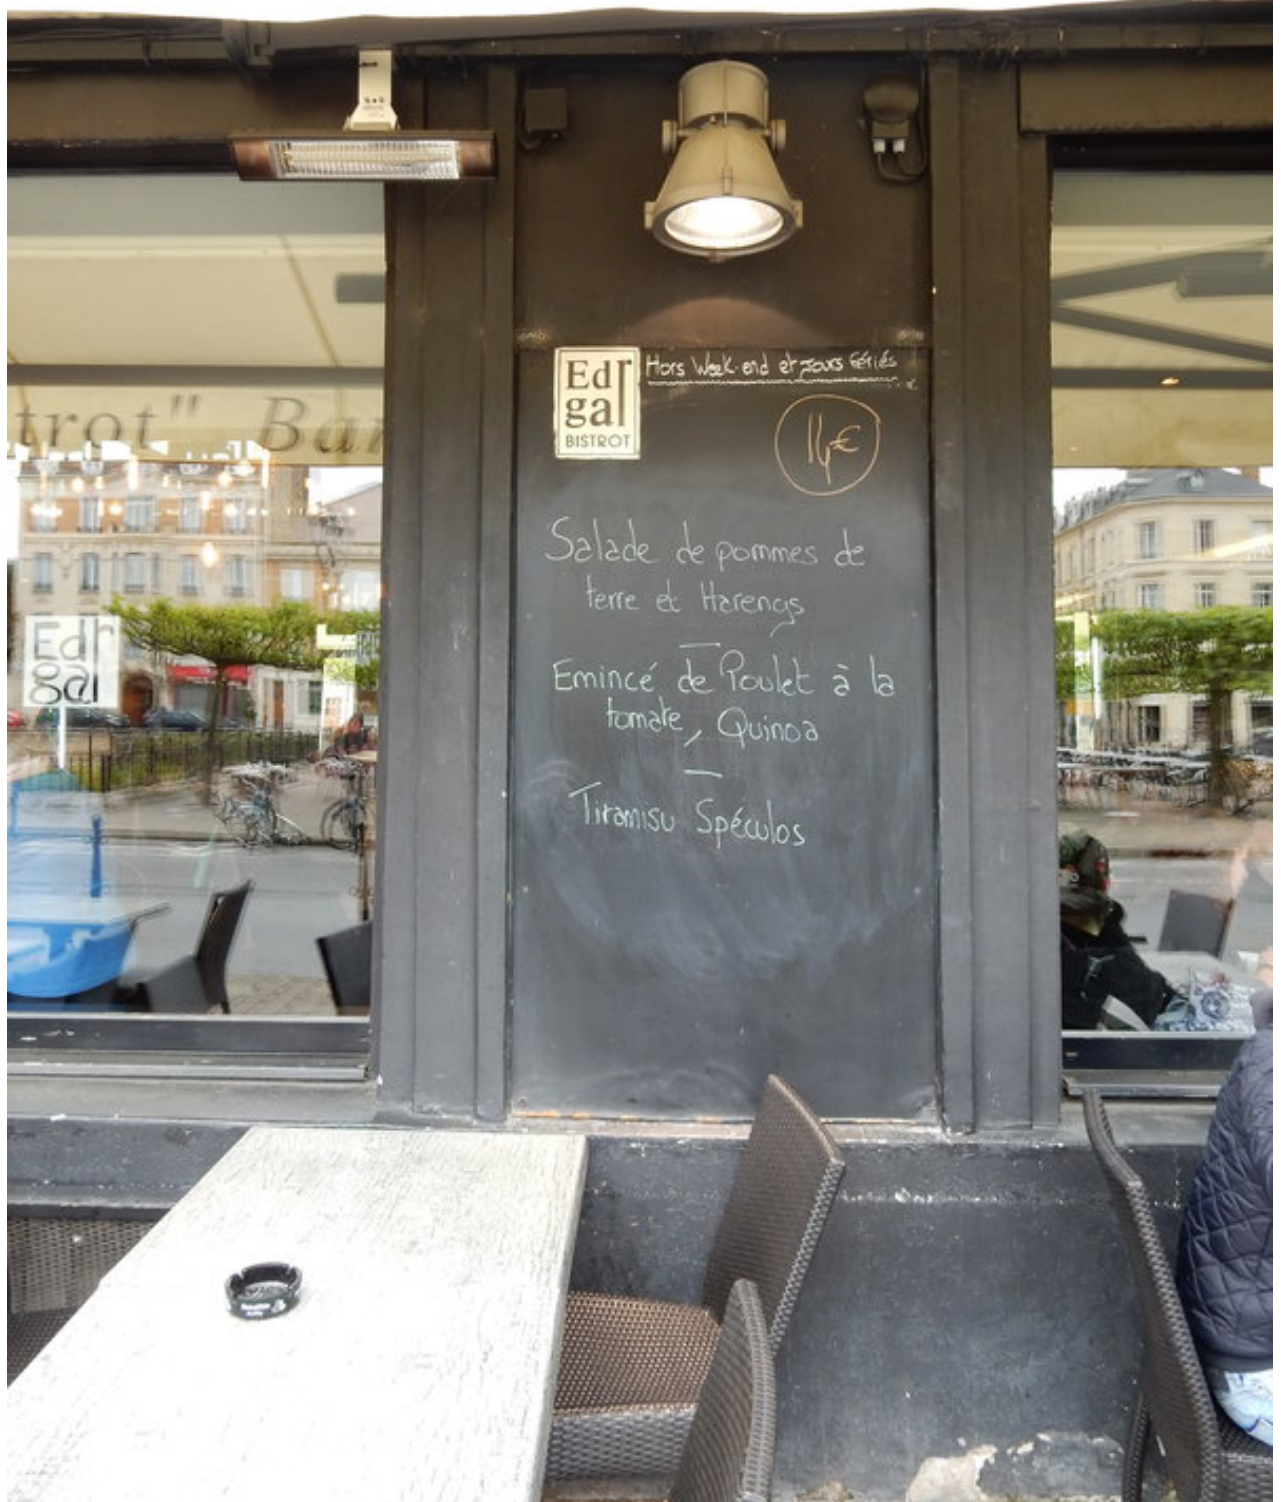 trot" Bar
Edr
gal
BISTROT
Hors Week-end et jours fériés
14€
Salade de pommes de
terre et Harengs
Emincé de Poulet à la
tomate, Quinoa
Tiramisu Spéculos
Edr
gal